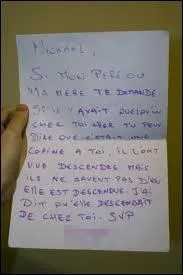 MICKAEL,
SI MON PERE OU
MA MERE TE DEMANDE
SI IL Y AVAIT QUELQU'UN
CHEZ TOI HIER TU PEUX
DIRE QUE C'ETAIT UNE
COPINE A TOI, IL L'ONT
VUE DESCENDRE MAIS
ILS NE SAVENT PAS D'OU
ELLE EST DESCENDUE. J'AI
DIT QU'ELLE DESCENDAIT
DE CHEZ TOI. SVP